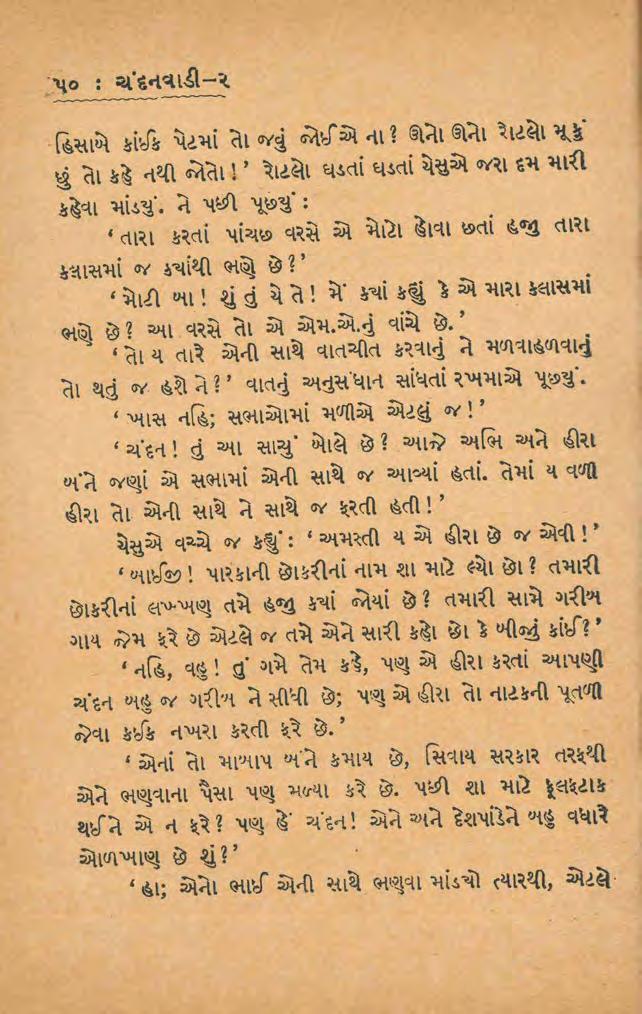 ૫૦ : ચંદનવાડી–૨
હિસાબે કાંઈક પેટમાં તો જવું જોઈએ ના? ઊનો ઊનો રોટલો મૂકું
છું તો કહે નથી જોતો!’ રોટલો ઘડતાં ઘડતાં યેસુએ જરા દમ મારી
કહેવા માંડ્યું. ને પછી પૂછ્યું :
‘તારા કરતાં પાંચછ વરસે એ મોટો હોવા છતાં હજી તારા
ક્લાસમાં જ ક્યાંથી ભણે છે?’
‘મોટી બા! શું તું યે તે! મેં ક્યાં કહ્યું કે એ મારા ક્લાસમાં
ભણે છે? આ વરસે તો એ એમ.એ.નું વાંચે છે.’
‘તો ય તારે એની સાથે વાતચીત કરવાનું ને મળવાહળવાનું
તો થતું જ હશે ને?’ વાતનું અનુસંધાન સાંધતાં રખમાએ પૂછ્યું.
‘ખાસ નહિ; સભાઓમાં મળીએ એટલું જ!’
‘ચંદન! તું આ સાચું બોલે છે? આજે અભિ અને હીરા
બંને જણાં એ સભામાં એની સાથે જ આવ્યાં હતાં. તેમાં ય વળી
હીરા તો એની સાથે ને સાથે જ ફરતી હતી!’
યેસુએ વચ્ચે જ કહ્યું : ‘અમસ્તી ય એ હીરા છે જ એવી!’
‘બાઈજી! પારકાની છોકરીનાં નામ શા માટે લ્યો છો? તમારી
છોકરીનાં લખ્ખણ તમે હજી ક્યાં જોયાં છે? તમારી સામે ગરીબ
ગાય જેમ ફરે છે એટલે જ તમે એને સારી કહો છો કે બીજું કાંઈ?’
‘નહિ, વહુ! તું ગમે તેમ કહે, પણ એ હીરા કરતાં આપણી
ચંદન બહુ જ ગરીબ ને સીધી છે; પણ એ હીરા તો નાટકની પૂતળી
જેવા કઈક નખરા કરતી ફરે છે.’
‘એનાં તો માબાપ બંને કમાય છે, સિવાય સરકાર તરફથી
એને ભણવાના પૈસા પણ મળ્યા કરે છે. પછી શા માટે ફૂલફટાક
થઈને એ ન ફરે? પણ હેં ચંદન! એને અને દેશપાંડેને બહુ વધારે
ઓળખાણ છે શું?’
‘હા; એનો ભાઈ એની સાથે ભણવા માંડ્યો ત્યારથી, એટલે